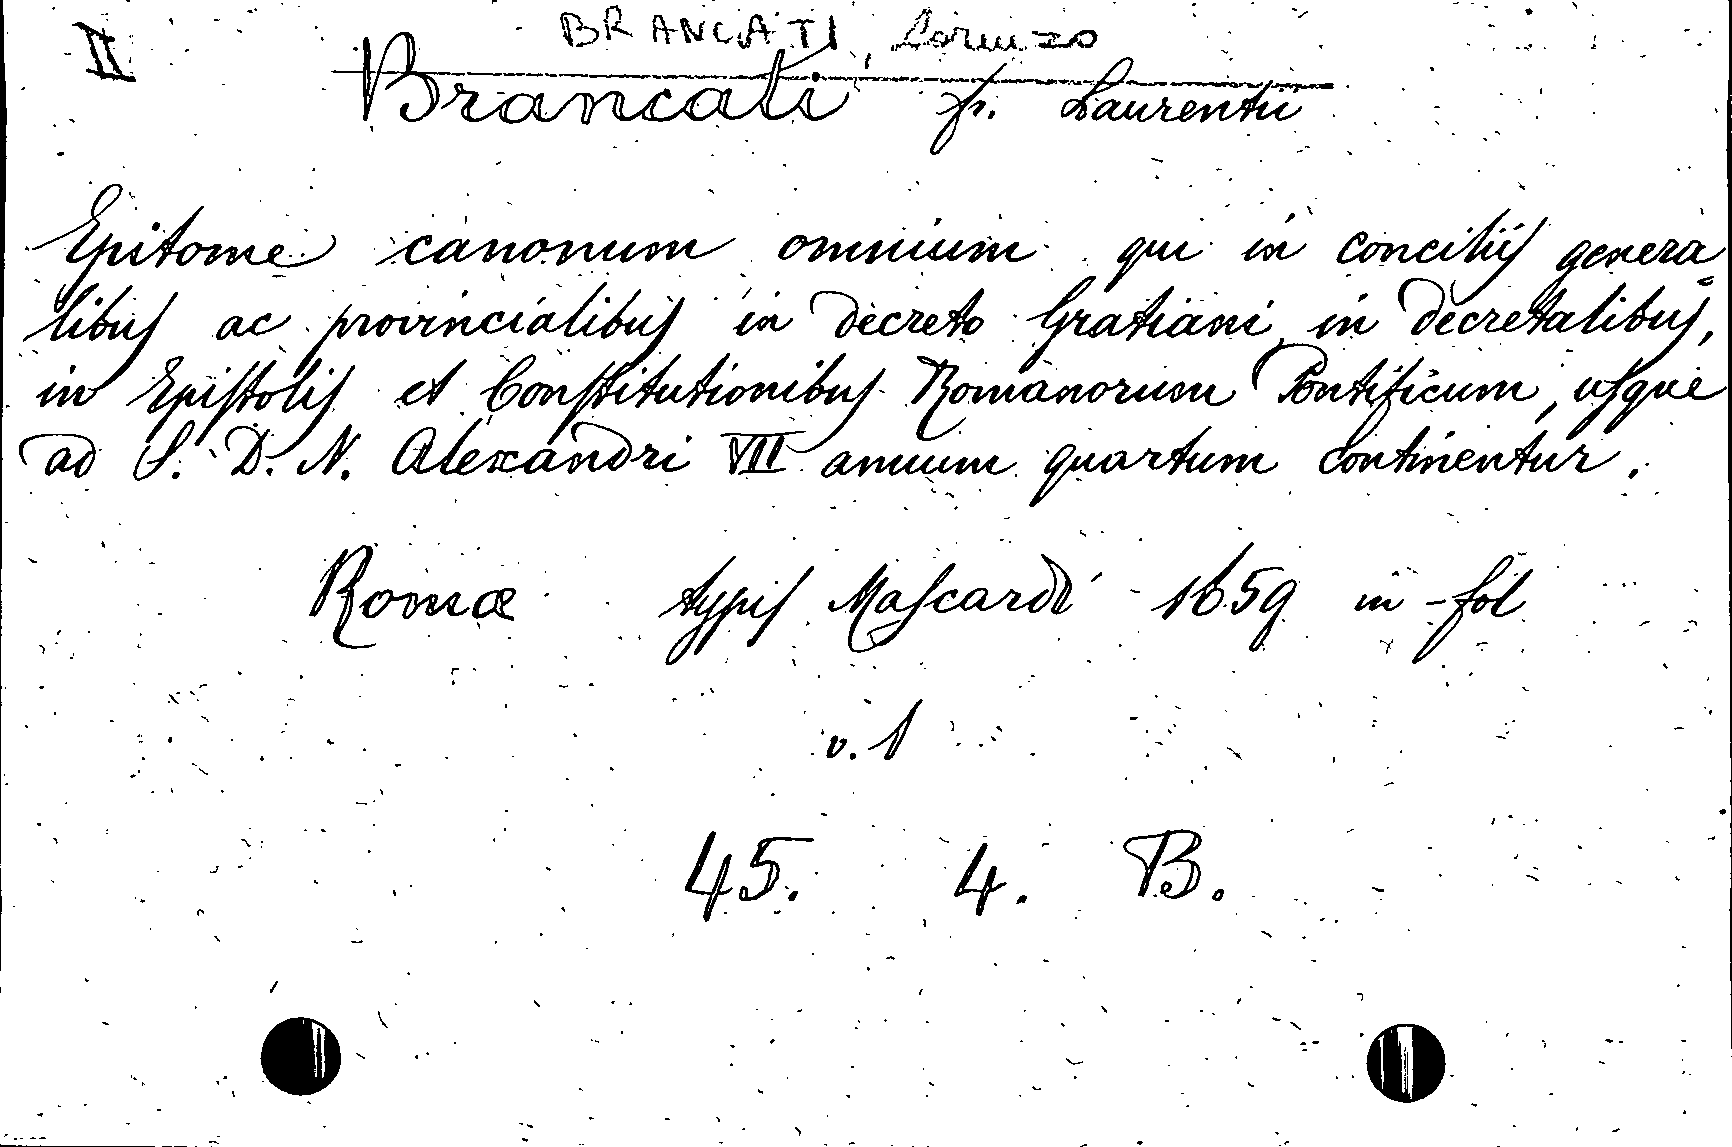 II
BRANCATI, Lorenzo
Brancati fr. Laurentii
Epitome canonum omnium qui in conciliis genera
libus ac provincialibus in decreto Gratiani, in decretalibus,
in Epistolis et Constitutionibus Romanorum Pontificum, usque
ad S. D. N. Alexandri VII annum quartum continentur.
Romæ typis Mascardi 1659 in-fol
v. 1
45. 4. B.